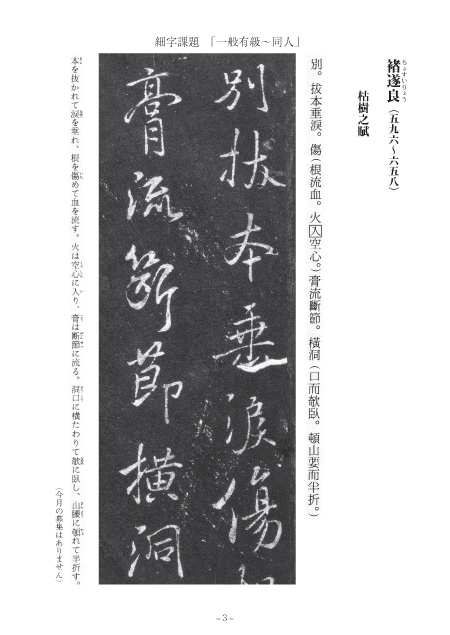 細字課題　「一般有級～同人」
褚遂良（五九六～六五八）
ちょすいりょう
枯樹之賦
別。拔本垂淚。傷（根流血。火入空心。）膏流斷節。橫洞（口而敧臥。頓山要而半折。）
別拔本垂淚傷
膏流斷節橫洞
本を抜かれて涙を垂れ、根を傷めて血を流す。火は空心に入り、膏は断節に流る。洞口に横たわりて敧に臥し、山腰に頓れて半折す。
（今月の募集はありません）
－3－